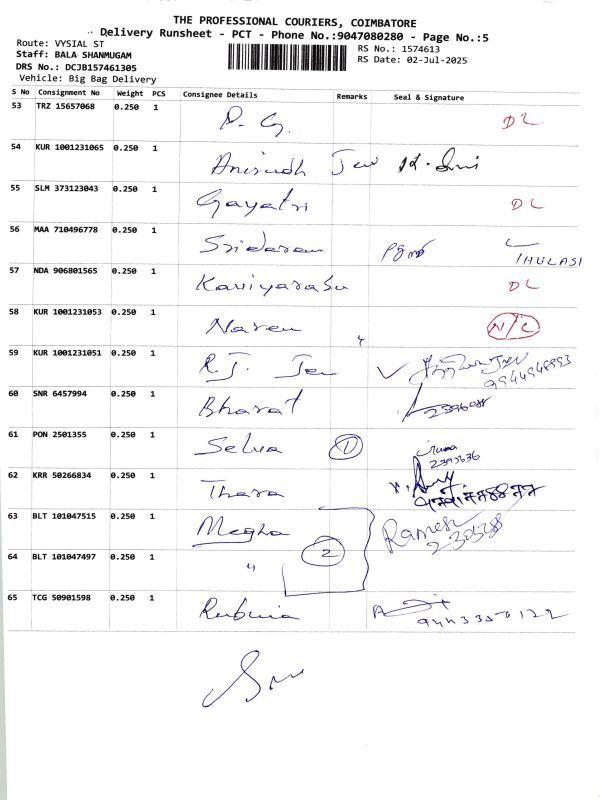 THE PROFESSIONAL COURIERS, COIMBATORE
Delivery Runsheet - PCT - Phone No.:9047080280 - Page No.:5
Route: VYSIAL ST
Staff: BALA SHANMUGAM
DRS No.: DCJB157461305
Vehicle: Big Bag Delivery
RS No.: 1574613
RS Date: 02-Jul-2025
S No Consignment No Weight PCS Consignee Details Remarks Seal & Signature
53 TRZ 15657068 0.250 1 P. G. DL
54 KUR 1001231065 0.250 1 Anirudh Jew
55 SLM 373123043 0.250 1 Gayatri DL
56 MAA 710496778 0.250 1 Sridaran THULASI
57 NDA 906801565 0.250 1 Kaviyarasu DL
58 KUR 1001231053 0.250 1 Naren N/C
59 KUR 1001231051 0.250 1 R.J. Jew
9944948993
60 SNR 6457994 0.250 1 Bharat
61 PON 2501355 0.250 1 Selva 1
2395636
62 KRR 50266834 0.250 1 Thara
63 BLT 101047515 0.250 1 Megha Ramesh
2
64 BLT 101047497 0.250 1 "
65 TCG 50901598 0.250 1